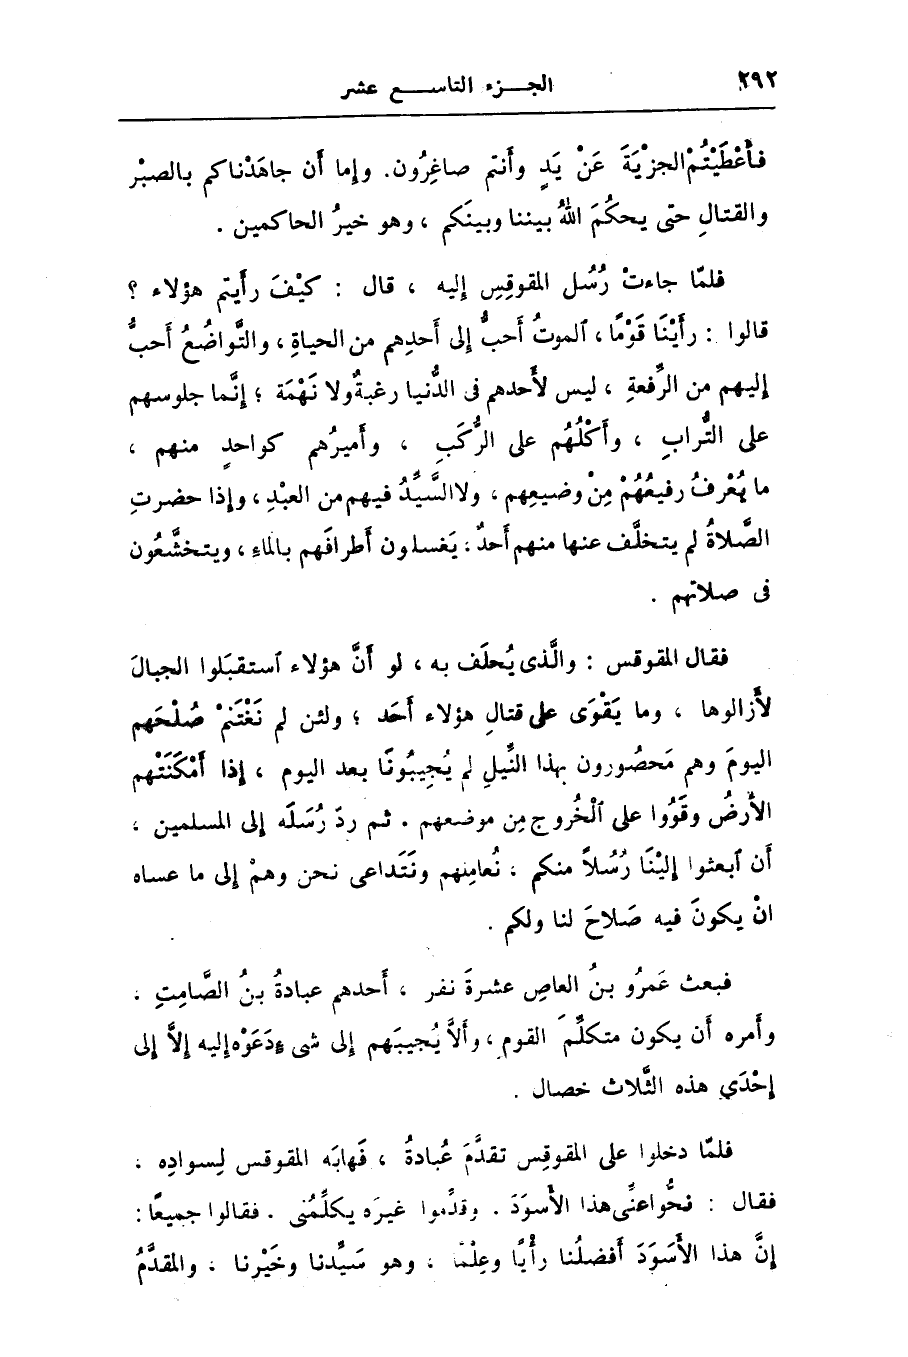 ٢٩٢
الجـــزء التاســـع عشر
فأَعْطَيْتُمْ الجزْيَةَ عَنْ يَدٍ وأَنتم صاغِرُون. وإما أَن جاهَدْناكم بالصبْر
والقتالِ حتى يحكُمَ اللهُ بيننا وبينَكم ، وهو خيرُ الحاكمين .
فلمّا جاءتْ رُسُل المقوقِسِ إليه ، قال : كيْفَ رأَيتم هؤلاء ؟
قالوا : رأَيْنَا قَوْمًا ، ٱلموتُ أَحبُّ إلى أَحدِهم من الحياةِ ، والتَّواضُعُ أَحبُّ
إليهم من الرِّفعةِ ، ليس لأَحدهم فى الدُّنيا رغبةٌ ولا نَهْمَة ؛ إنَّما جلوسهم
على التُّرابِ ، وأَكْلُهُم على الرُّكَبِ ، وأَميرُهم كواحدٍ منهم ،
ما يُعْرفُ رفيعُهُمْ مِنْ وضيعِهم ، ولا السَّيِّدُ فيهم من العبْدِ ، وإذا حضرتِ
الصَّلاةُ لم يتخلَّف عنها منهم أَحدٌ ، يَغسلون أَطرافَهم بالماءِ ، ويتخشَّعُون
فى صلاتهم .
فقال المقوقس : والَّذى يُحلَف به ، لو أَنَّ هؤلاء ٱستقبَلوا الجبالَ
لأَزالوها ، وما يَقْوَى على قتالِ هؤلاء أَحَد ؛ ولئن لم نَغْتَنمْ صُلْحَهم
اليومَ وهم مَحصُورون بهذا النِّيلِ لم يُجِيبُونَا بعد اليوم ، إذا أَمْكَنَتْهم
الأَرضُ وقَوُوا على ٱلْخُروجِ مِن موضعهم . ثم ردّ رُسُلَه إلى المسلمين ،
أَن ٱبعثوا إليْنَا رُسُلاً منكم ، نُعامِلهم ونَتَداعى نحن وهمْ إلى ما عساه
انْ يكونَ فيه صَلاحَ لنا ولكم .
فبعث عَمرُو بنُ العاصِ عشرةَ نفر ، أَحدهم عبادةُ بنُ الصَّامِتِ ،
وأَمره أَن يكون متكلِّمَ القوم ، وأَلاَّ يُجيبَهم إلى شىءٍ دَعَوْه إليه إلاَّ إلى
إحْدَي هذه الثَّلاث خصال .
فلمّا دخلوا على المقوقِس تقدَّمَ عُبادةُ ، فَهابَه المقوقس لِسوادِه ،
فقال : نحُّوا عنِّى هذا الأَسوَدَ . وقدِّموا غيرَه يكلِّمْنى . فقالوا جميعًا :
إنَّ هذا الأَسَوَدَ أَفضلُنا رأْيًا وعِلْمًا ، وهو سَيِّدنا وخَيْرنا ، والمقدَّمُ